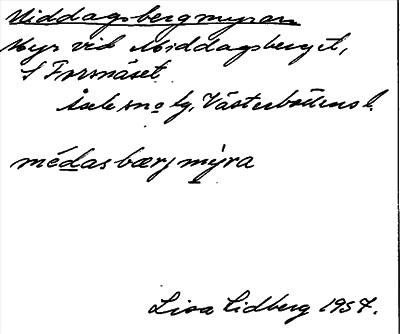 Middagsbergmyran
Myr vid Middagsberget,
S Forsnäset
Åsele sn o lg, Västerbottens l.
médas bærj mỳra
Lisa Lidberg 1957.